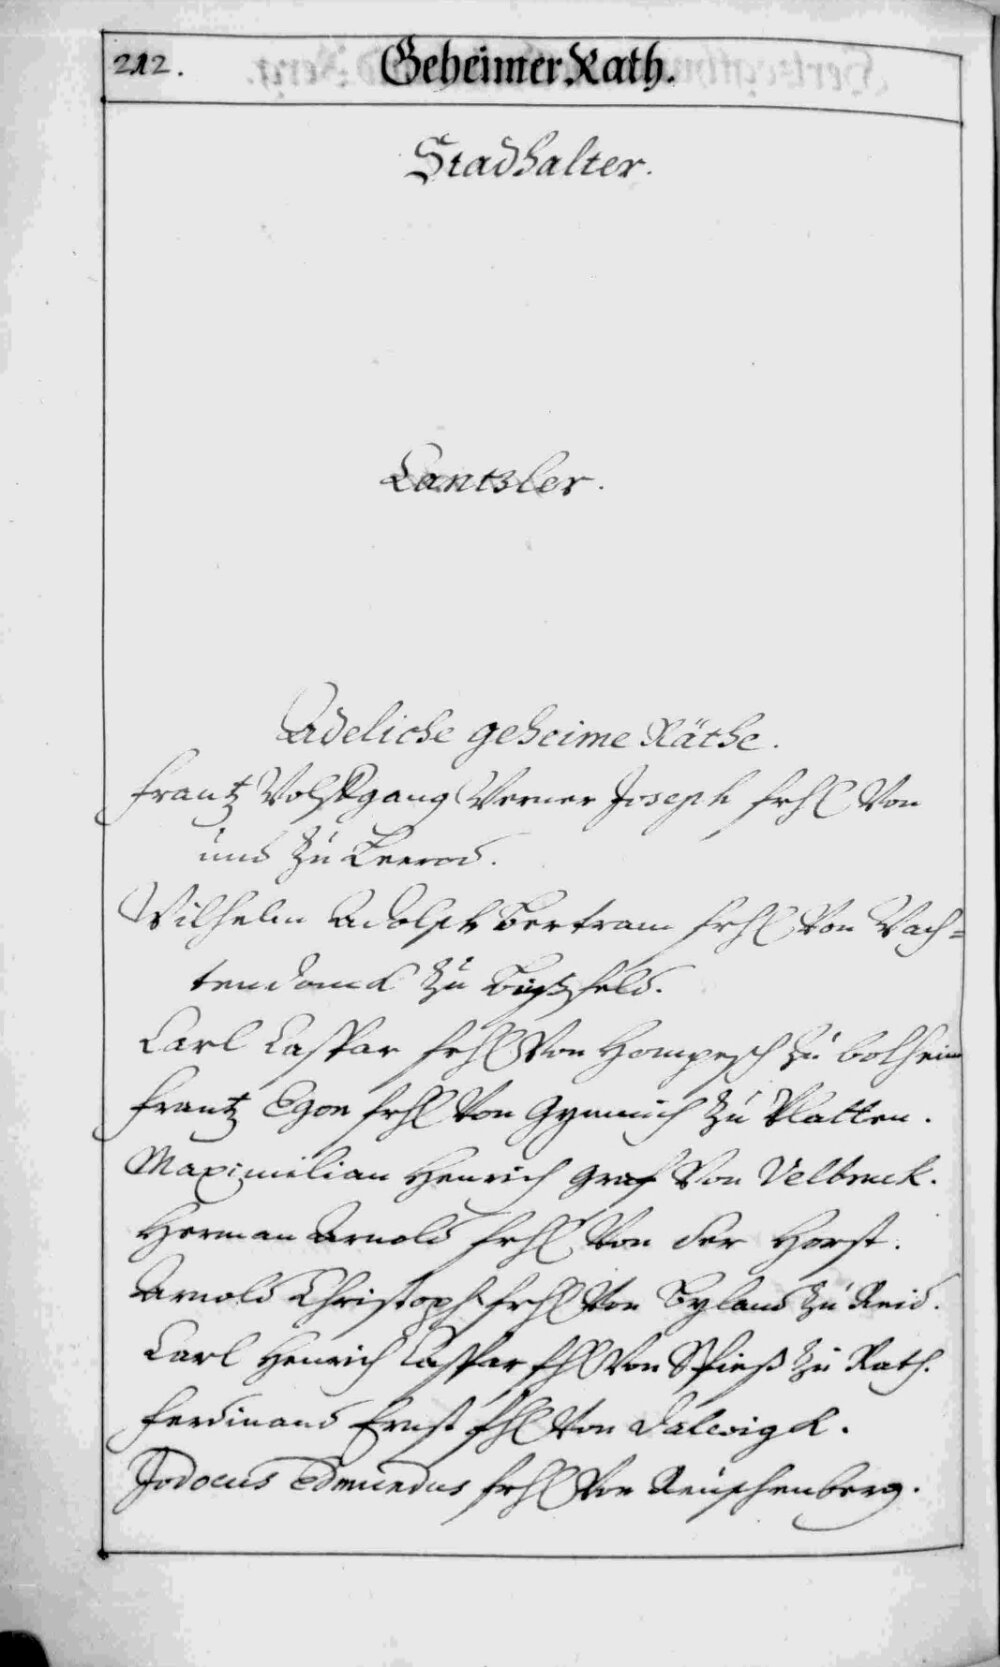 212.
Geheimer Rath.
Stadhalter.
Cantzler.
Adeliche geheime Räthe.
Frantz Wolffgang Werner Joseph frhl Von
und Zu Leerod.
Wilhelm Adolph Bertram frhl Von Wach=
tendonck Zu
Carl Caspar frhl Von Hompesch Zu bolheim
Frantz Egon frhl Von Gymnich Zu Vlatten.
Maximilian Henrich Graf Von Velbruck.
Herman Arnold frhl Von der Horst.
Arnold Christoph frhl Von Byland Zu Reid.
Carl Henrich Caspar fhl Von Spieß Zu Rath.
Ferdinand Ernst fhl Von Dalwigk.
Jodocus Edmundus frhl Von Reuschenberg.